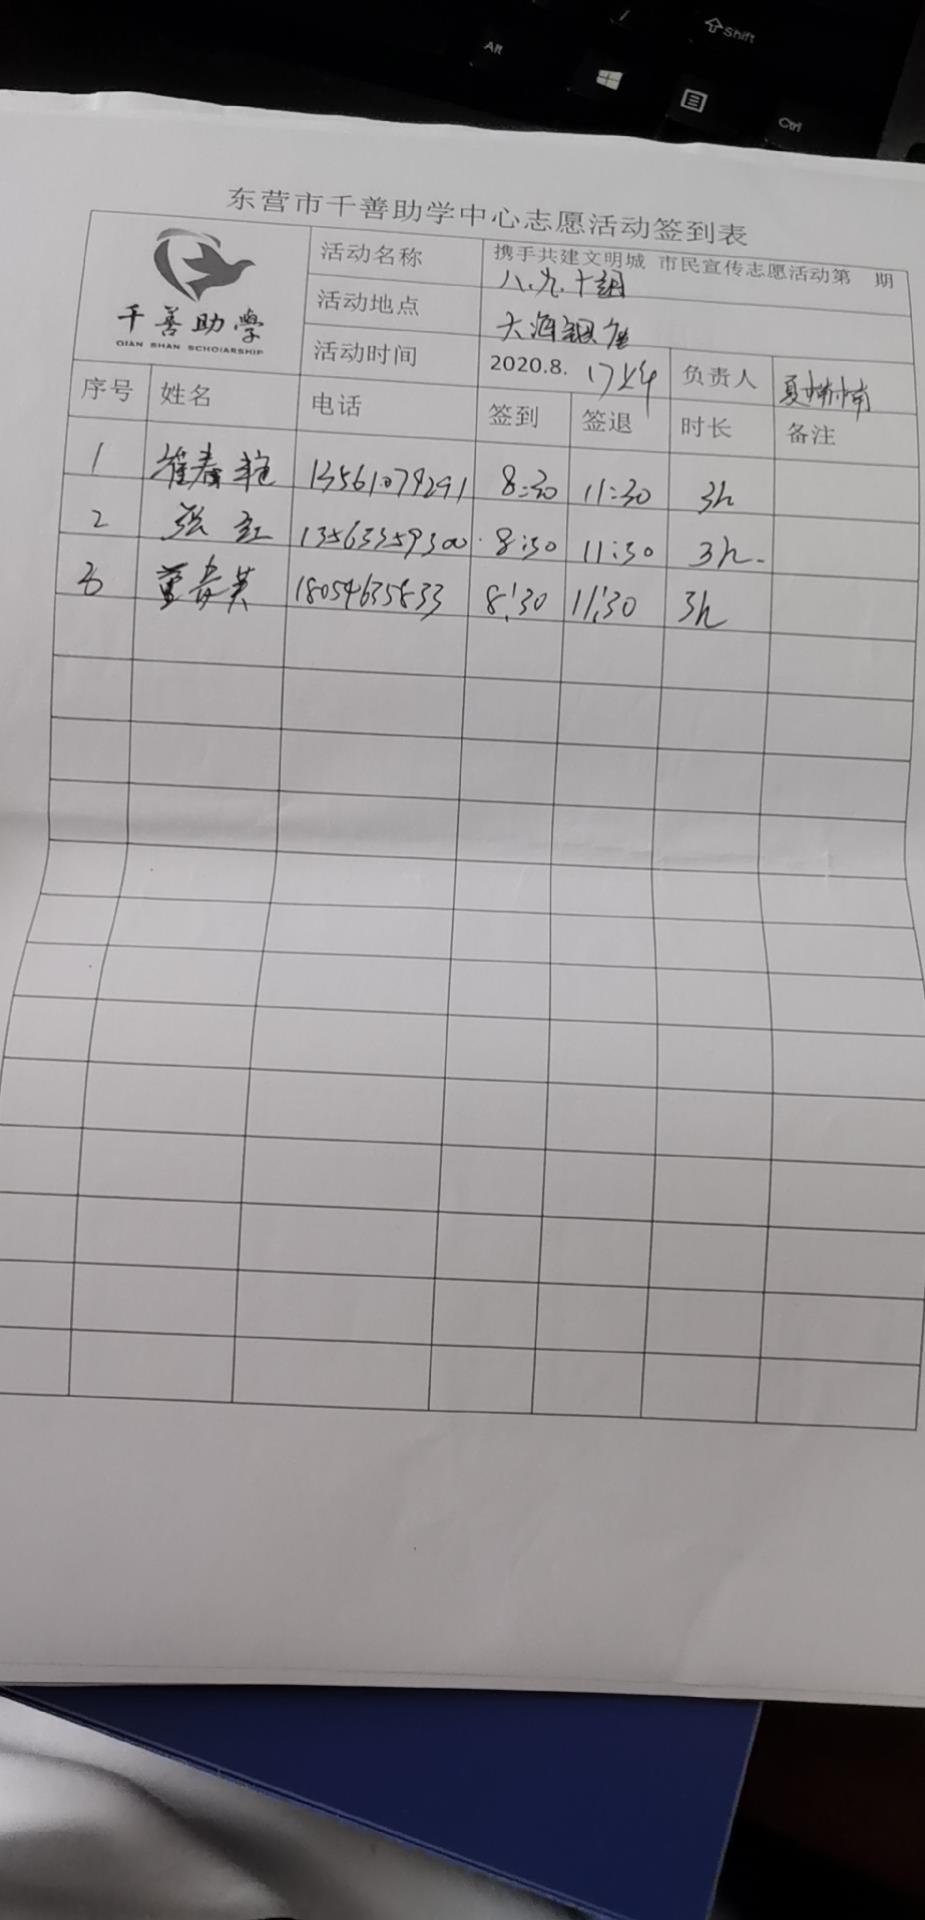 Alt
Shift
Ctrl
东营市千善助学中心志愿活动签到表
千善助学
QIAN SHAN SCHOLARSHIP
活动名称 携手共建文明城 市民宣传志愿活动第 期
八.九.十组
活动地点 大海
活动时间 2020.8. 17上午 负责人 夏
序号 姓名 电话 签到 签退 时长 备注
1 崔春艳 13561079291 8:30 11:30 3h
2 张红 13563359300 8:30 11:30 3h
3 董春英 18054635833 8:30 11:30 3h